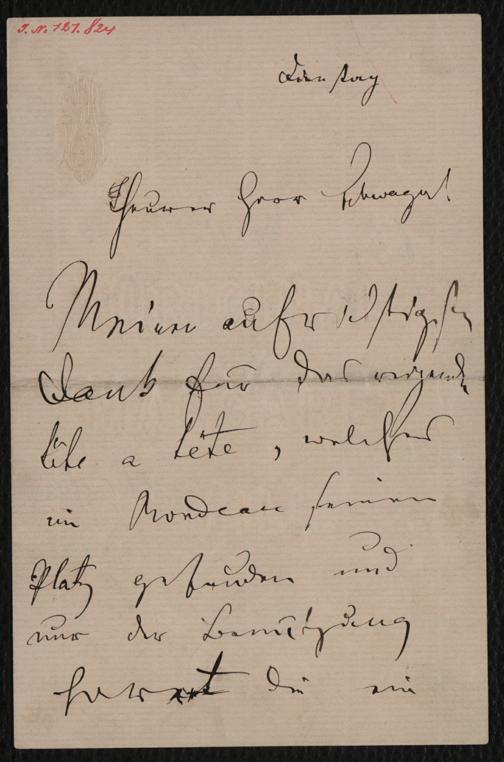 I. N. 121.824
Dienstag
Theurer Herr Schwager!
Meinen aufrichtigsten
Dank für das reizende
tête a tête, welches
im Rondeau seinen
Platz gefunden und
nur der Benützung
harrt die ein